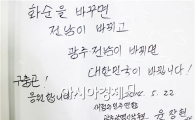 화순을 바꾸면
전남이 바뀌고
광주전남이 바뀌면
대한민국이 바뀝니다!
구충곤!
응원합니다
5. 22
윤장현